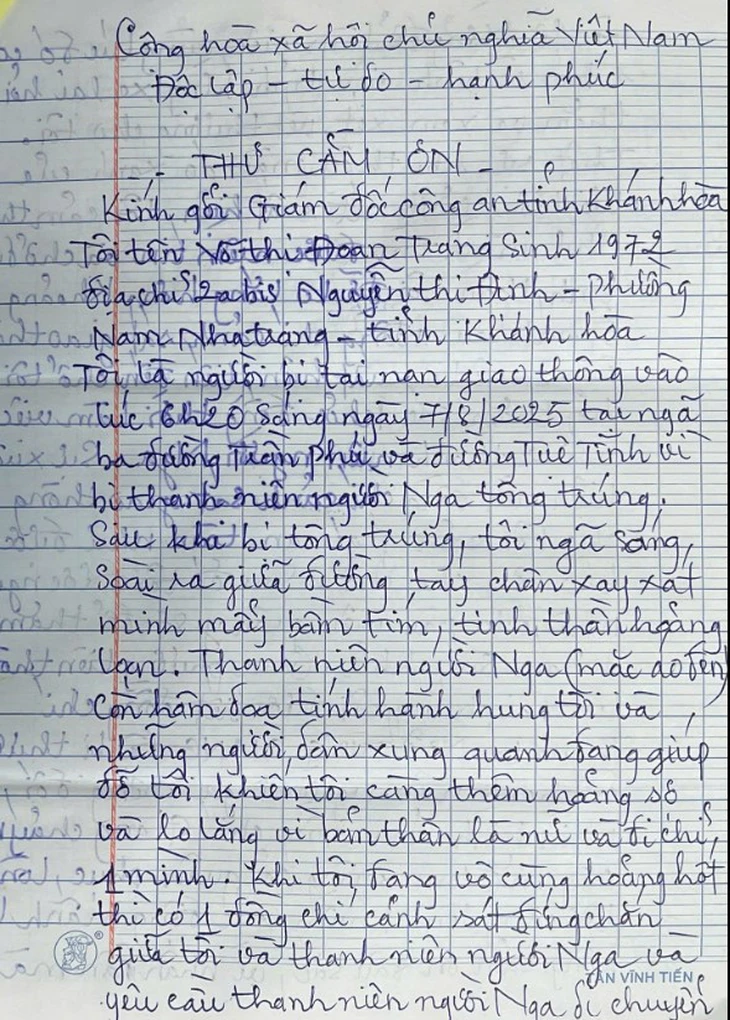 Công hoà xã hôi chủ nghĩa Việt Nam
Độc lập - tự do - hạnh phúc
- THƯ CẢM ƠN -
Kính gởi Giám đốc công an tỉnh Khánh hòa
Tôi tên Võ thị Đoan Trang Sinh 1972
địa chỉ 12a bis Nguyễn thị Định - Phường
Nam Nha trang - tỉnh Khánh hòa
Tôi là người bị tai nạn giao thông vào
lúc 6h20 sáng ngày 7/8/2025 tại ngã
ba đường Trần Phú và đường Tuệ Tĩnh vì
bị thanh niên người Nga tông trúng.
Sau khi bị tông trúng, tôi ngã
Soài ra giữa đường, tay chân xay xát
mình mẩy bầm tím, tinh thần hoảng
loạn. Thanh niên người Nga (mặc áo đen)
còn hâm dọa tính hành hung tôi và
những người dân xung quanh đang giúp
đỡ tôi khiến tôi càng thêm hoảng sợ
và lo lắng vì bản thân là nữ và đi chỉ
1 mình. Khi tôi đang vô cùng hoảng hốt
thì có 1 đồng chí cảnh sát đứng chắn
giữa tôi và thanh niên người Nga và
VĨNH TIẾN
yêu cầu thanh niên người Nga di chuyển